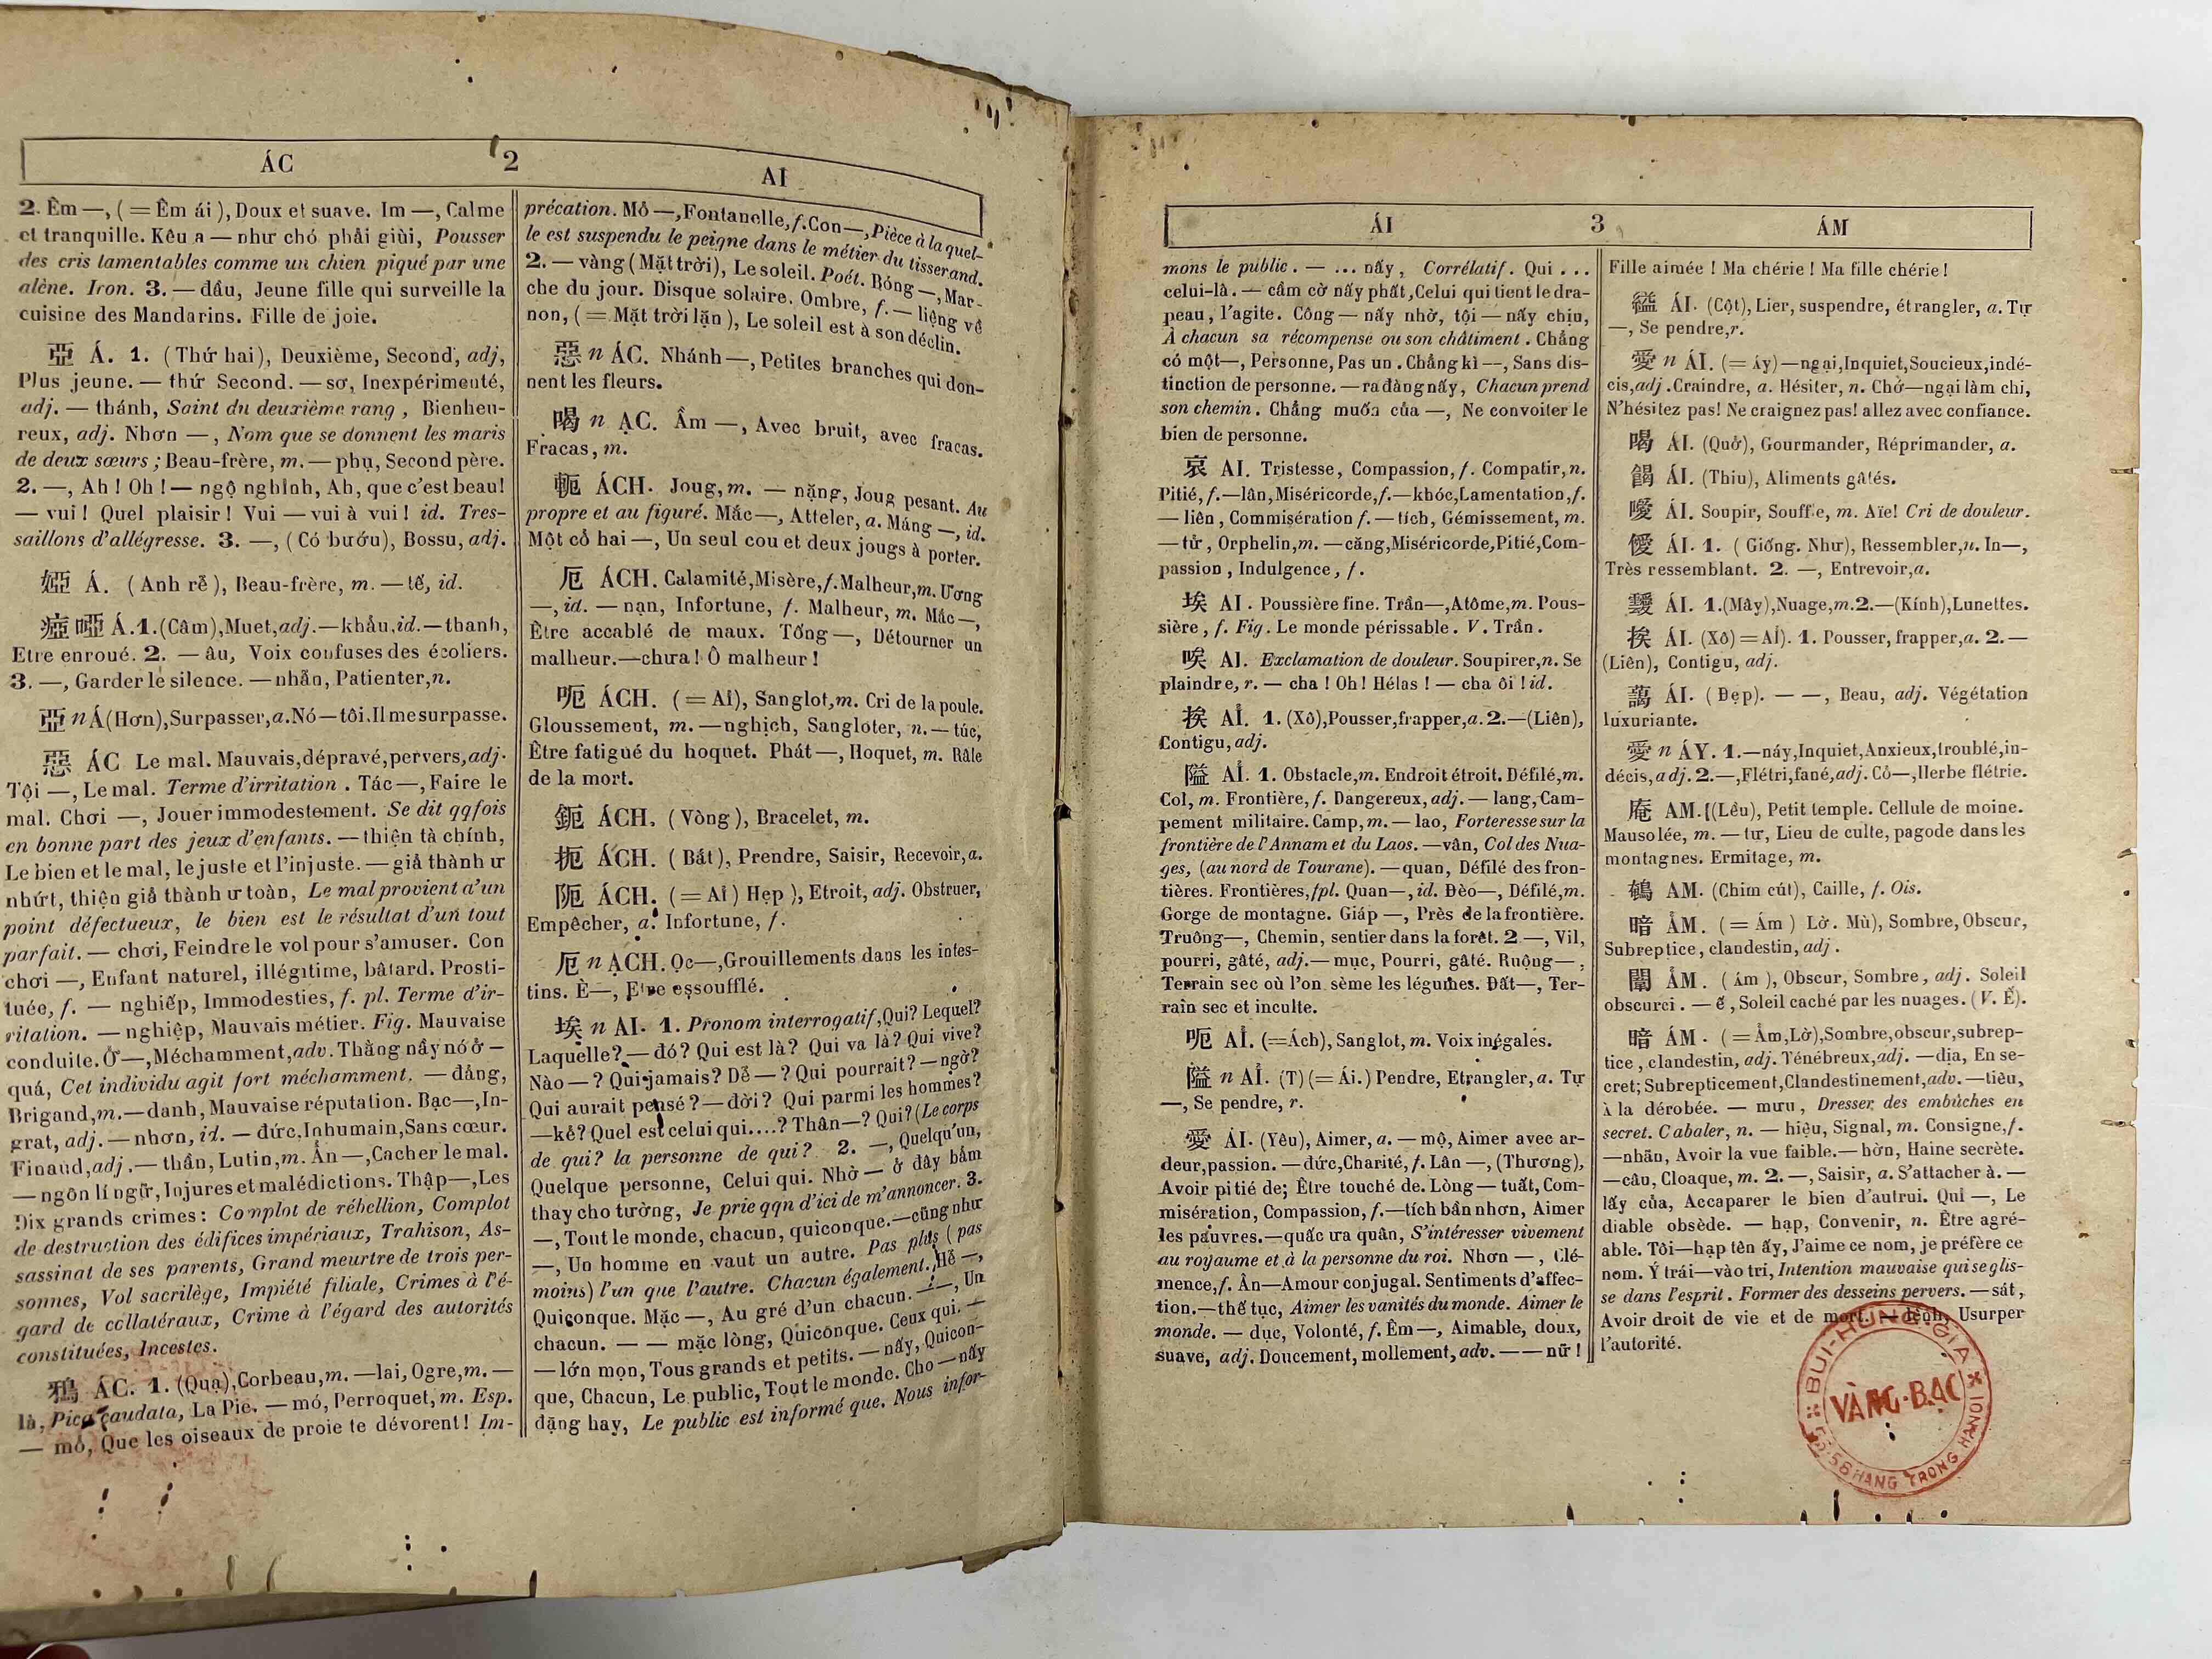 ÁC 2 AI
2. Êm —, ( = Êm ái ), Doux et suave. Im —, Calme
et tranquille. Kêu a — như chó phải giùi, Pousser
des cris lamentables comme un chien piqué par une
alêne. Iron. 3. — đầu, Jeune fille qui surveille la
cuisine des Mandarins. Fille de joie.
亞 Á. 1. (Thứ hai), Deuxième, Second, adj,
Plus jeune. — thứ Second. — sơ, Inexpérimenté,
adj. — thánh, Saint du deuxième rang, Bienheu-
reux, adj. Nhơn —, Nom que se donnent les maris
de deux sœurs ; Beau-frère, m. — phụ, Second père.
2. —, Ah ! Oh ! — ngộ nghĩnh, Ah, que c'est beau!
— vui ! Quel plaisir ! Vui — vui à vui ! id. Tres-
saillons d'allégresse. 3. —, ( Có bướu), Bossu, adj.
婭 Á. ( Anh rể ), Beau-frère, m. — tế, id.
瘂 啞 Á.1.(Câm),Muet,adj.—khẩu.id.—thanh,
Etre enroué. 2. — âu, Voix confuses des écoliers.
3. —, Garder le silence. — nhẫn, Patienter,n.
亞 n Á(Hơn),Surpasser,a.Nó—tôi.Ilmesurpasse.
惡 ÁC Le mal. Mauvais,dépravé,pervers,adj.
Tội —, Le mal. Terme d'irritation. Tác —, Faire le
mal. Chơi —, Jouer immodestement. Se dit qqfois
en bonne part des jeux d'enfants. — thiện tà chính,
Le bien et le mal, le juste et l'injuste. — giả thành ư
nhứt, thiện giả thành ư toàn, Le mal provient d'un
point défectueux, le bien est le résultat d'un tout
parfait. — chơi, Feindre le vol pour s'amuser. Con
chơi —, Enfant naturel, illégitime, bâtard. Prosti-
tuée, f. — nghiếp, Immodesties, f. pl. Terme d'ir-
ritation. — nghiệp, Mauvais métier. Fig. Mauvaise
conduite.Ở—,Méchamment,adv. Thằng nầy nó ở —
quá, Cet individu agit fort méchamment. — đảng,
Brigand,m.—danh, Mauvaise réputation. Bạc—,In-
grat, adj. — nhơn, id. — đức, Inhumain,Sans cœur.
Finaud,adj. — thần, Lutin,m. Ẩn —,Cacher le mal.
— ngôn lí ngữ, Injures et malédictions. Thập—,Les
Dix grands crimes : Complot de rébellion, Complot
de destruction des édifices impériaux, Trahison, As-
sassinat de ses parents, Grand meurtre de trois per-
sonnes, Vol sacrilège, Impiété filiale, Crimes à l'é-
gard de collatéraux, Crime à l'égard des autorités
constituées, Incestes.
鴉 ÁC. 1. (Quạ),Corbeau,m. —lai, Ogre,m.—
là, Pica caudata, La Pie. — mó, Perroquet, m. Esp.
— mổ, Que les oiseaux de proie te dévorent ! Im-
précation. Mỏ —,Fontanelle,f.Con—,Pièce à la quel-
le est suspendu le peigne dans le métier du tisserand.
2. — vàng ( Mặt trời), Le soleil. Poét. Bóng —, Mar-
che du jour. Disque solaire. Ombre, f. — liệng về
non, ( = Mặt trời lặn ), Le soleil est à son déclin.
惡 n ÁC. Nhánh —, Petites branches qui don-
nent les fleurs.
喝 n ẠC. Ầm —, Avec bruit, avec fracas.
Fracas, m.
軛 ÁCH. Joug, m. — nặng, Joug pesant. Au
propre et au figuré. Mắc—, Atteler, a. Máng —, id.
Một cổ hai —, Un seul cou et deux jougs à porter.
厄 ÁCH. Calamité,Misère,f.Malheur,m. Ương
—, id. — nạn, Infortune, f. Malheur, m. Mắc —,
Être accablé de maux. Tống —, Détourner un
malheur.—chưa ! Ô malheur !
呃 ÁCH. ( = Ải), Sanglot,m. Cri de la poule.
Gloussement, m. — nghịch, Sangloter, n. — túc,
Être fatigué du hoquet. Phát —, Hoquet, m. Râle
de la mort.
鈪 ÁCH. ( Vòng ), Bracelet, m.
扼 ÁCH. ( Bắt), Prendre, Saisir, Recevoir,a.
阨 ÁCH. ( = Ải ) Hẹp ), Etroit, adj. Obstruer,
Empêcher, a. Infortune, f.
厄 n ẠCH. Ọc—,Grouillements dans les intes-
tins. È—, Etre essoufflé.
埃 n AI. 1. Pronom interrogatif,Qui? Lequel?
Laquelle? — đó? Qui est là? Qui va là? Qui vive?
Nào — ? Qui jamais? Dễ — ? Qui pourrait? — ngờ?
Qui aurait pensé? — đời? Qui parmi les hommes?
—kẻ? Quel est celui qui....? Thân—? Qui? (Le corps
de qui? la personne de qui? 2. —, Quelqu'un,
Quelque personne, Celui qui. Nhờ — ở đây bẩm
thay cho tường, Je prie qqn d'ici de m'annoncer. 3.
—, Tout le monde, chacun, quiconque.—cũng như
—, Un homme en vaut un autre. Pas plus ( pas
moins) l'un que l'autre. Chacun également. Hễ —,
Quiconque. Mặc —, Au gré d'un chacun. — —, Un
chacun. — — mặc lòng, Quiconque. Ceux qui. —
— lớn mọn, Tous grands et petits. — nấy, Quicon-
que, Chacun, Le public, Tout le monde. Cho — nấy
đặng hay, Le public est informé que. Nous infor-
ÁI 3 ÁM
mons le public. — ... nấy, Corrélatif. Qui ...
celui-là. — cầm cờ nấy phất,Celui qui tient le dra-
peau, l'agite. Công — nấy nhờ, tội — nấy chịu,
À chacun sa récompense ou son châtiment. Chẳng
có một—, Personne, Pas un. Chẳng kì —, Sans dis-
tinction de personne. — ra đàng nấy, Chacun prend
son chemin. Chẳng muốn của —, Ne convoiter le
bien de personne.
哀 AI. Tristesse, Compassion, f. Compatir, n.
Pitié, f.—lân,Miséricorde,f.—khóc,Lamentation,f.
— liên, Commisération f. — tích, Gémissement, m.
— tử, Orphelin,m. — căng,Miséricorde,Pitié,Com-
passion, Indulgence, f.
埃 AI. Poussière fine. Trần—,Atôme,m. Pous-
sière, f. Fig. Le monde périssable. V. Trần.
唉 AI. Exclamation de douleur. Soupirer,n. Se
plaindre, r. — cha ! Oh! Hélas ! — cha ôi ! id.
挨 AỈ. 1. (Xô),Pousser,frapper,a. 2.—(Liên),
Contigu, adj.
隘 AỈ. 1. Obstacle,m. Endroit étroit. Défilé,m.
Col, m. Frontière, f. Dangereux, adj. — lang, Cam-
pement militaire. Camp, m. — lao, Forteresse sur la
frontière de l'Annam et du Laos. —vân, Col des Nua-
ges, (au nord de Tourane). — quan, Défilé des fron-
tières. Frontières,fpl. Quan—, id. Đèo—, Défilé,m.
Gorge de montagne. Giáp —, Près de la frontière.
Truông—, Chemin, sentier dans la forêt. 2 —, Vil,
pourri, gâté, adj.— mục, Pourri, gâté. Ruộng—,
Terrain sec où l'on sème les légumes. Đất—, Ter-
rain sec et inculte.
呃 AỈ. (=Ách), Sanglot, m. Voix inégales.
隘 n AỈ. (T) (= Ái.) Pendre, Etrangler, a. Tự
—, Se pendre, r.
愛 ÁI. (Yêu), Aimer, a. — mộ, Aimer avec ar-
deur,passion. —đức,Charité, f. Lân —, (Thương),
Avoir pitié de; Être touché de. Lòng — tuất, Com-
misération, Compassion, f.—tích bần nhơn, Aimer
les pauvres.—quấc ưa quân, S'intéresser vivement
au royaume et à la personne du roi. Nhơn —, Clé-
mence, f. Ân—Amour conjugal. Sentiments d'affec-
tion.—thế tục, Aimer les vanités du monde. Aimer le
monde. — dục, Volonté, f. Êm —, Aimable, doux,
suave, adj. Doucement, mollement, adv. — — nữ !
Fille aimée ! Ma chérie ! Ma fille chérie !
縊 ÁI. (Cột), Lier, suspendre, étrangler, a. Tự
—, Se pendre,r.
愛 n ÁI. (= áy) —ngại,Inquiet,Soucieux,indé-
cis,adj.Craindre, a. Hésiter, n. Chớ—ngại làm chi,
N'hésitez pas! Ne craignez pas! allez avec confiance.
喝 ÁI. (Quở), Gourmander, Réprimander, a.
餲 ÁI. (Thiu), Aliments gâtés.
噯 ÁI. Soupir, Souffle, m. Aïe! Cri de douleur.
僾 ÁI. 1. ( Giống. Như), Ressembler,n. In—,
Très ressemblant. 2. —, Entrevoir,a.
靉 ÁI. 1.(Mây),Nuage,m.2.—(Kính),Lunettes.
挨 ÁI. (Xô) = AỈ). 1. Pousser, frapper,a. 2. —
(Liên), Contigu, adj.
藹 ÁI. ( Đẹp). — —, Beau, adj. Végétation
luxuriante.
愛 n ÁY. 1.—náy,Inquiet,Anxieux,troublé,in-
décis,adj. 2.—,Flétri,fané,adj. Cỏ—,Herbe flétrie.
庵 AM. (Lều), Petit temple. Cellule de moine.
Mausolée, m. — tự, Lieu de culte, pagode dans les
montagnes. Ermitage, m.
鵪 AM. (Chim cút), Caille, f. Ois.
暗 ẢM. ( = Ám ) Lờ. Mù), Sombre, Obscur,
Subreptice, clandestin, adj.
闇 ẢM. ( ám ), Obscur, Sombre, adj. Soleil
obscurci. — ế, Soleil caché par les nuages. (V. Ế).
暗 ÁM. ( = Ảm,Lờ),Sombre,obscur,subrep-
tice, clandestin, adj. Ténébreux,adj. —dịa, En se-
cret; Subrepticement,Clandestinement,adv. —tiêu,
à la dérobée. — mưu, Dresser des embûches en
secret. Cabaler, n. — hiệu, Signal, m. Consigne, f.
—nhãn, Avoir la vue faible.— hờn, Haine secrète.
—câu, Cloaque, m. 2. —, Saisir, a. S'attacher à. —
lấy của, Accaparer le bien d'autrui. Quỉ —, Le
diable obsède. — hạp, Convenir, n. Être agré-
able. Tôi—hạp tên ấy, J'aime ce nom, je préfère ce
nom. Ý trái—vào trí, Intention mauvaise qui se glis-
se dans l'esprit. Former des desseins pervers. — sát,
Avoir droit de vie et de mort. — lệnh, Usurper
l'autorité.
BUI-HUNG-GIA
VÀNG-BẠC
HANG TRONG HANOI